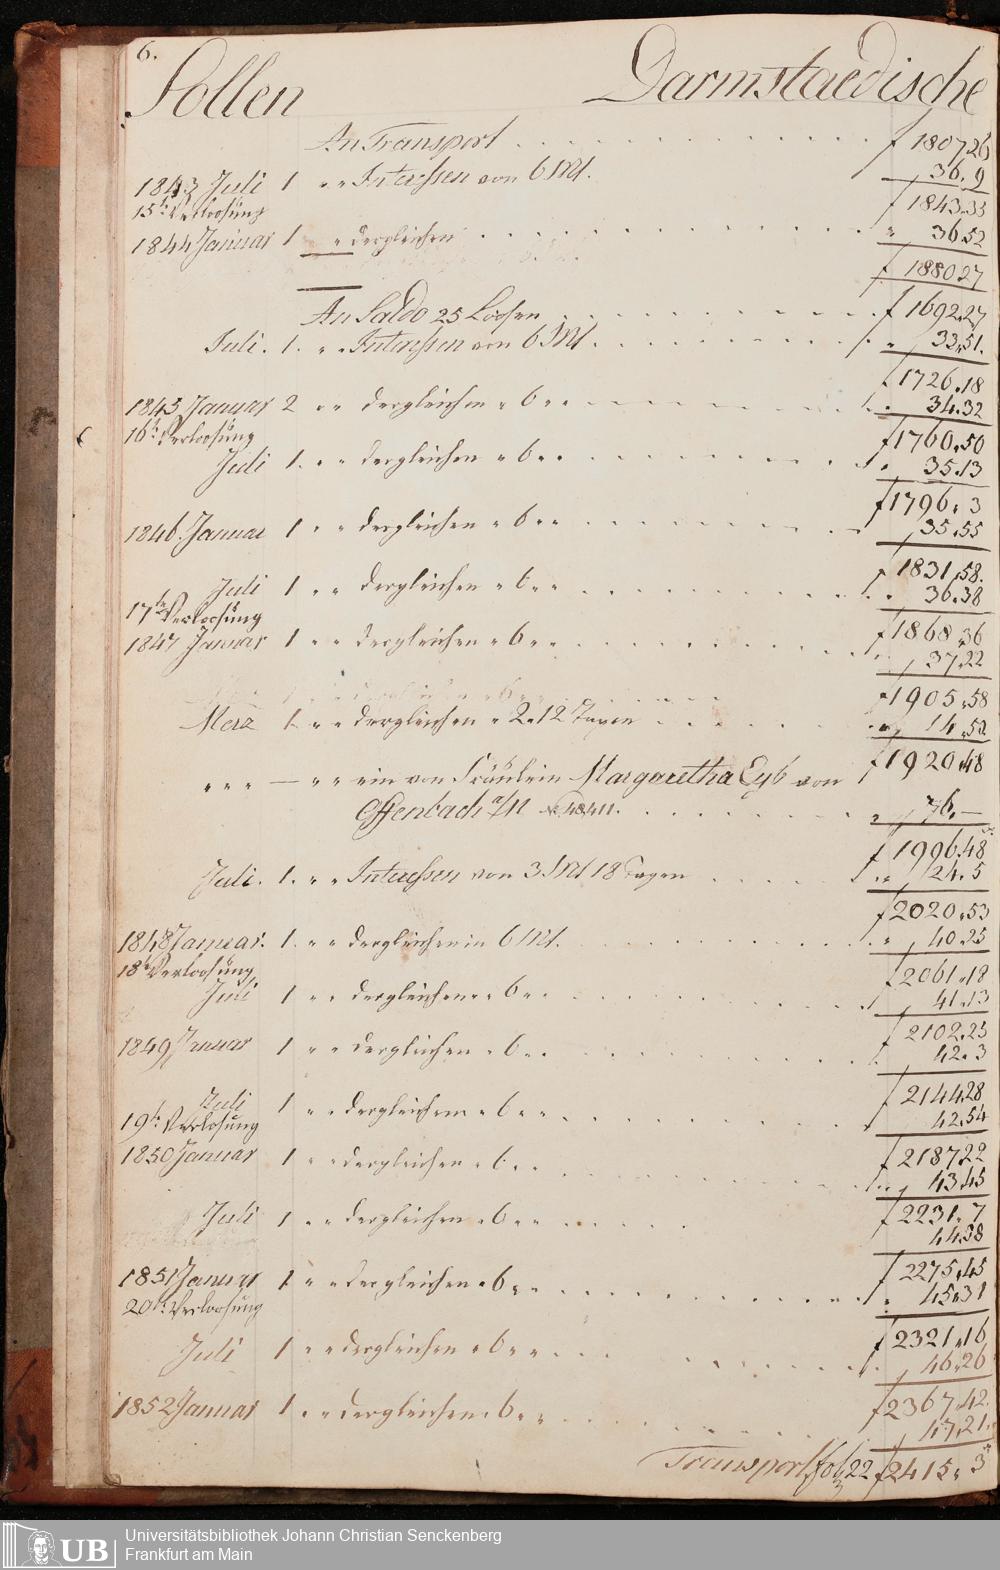 6.
Sollen Darmstaedische
An Transport f 1807.26
1843 Juli 1 " " Interessen von 6 Mt. 36. 9
15te Verloosüng f 1843.35
1844 Januar 1. " dergleichen " 36.52
f 1880.27
An Saldo 25 Loosen f 1692.27
Juli. 1. " " Interessen von 6 Mt " 33.51.
f 1726.18
1845 Januar 2 " " dergleichen " 6 " " 34.32
16te Verloosüng f 1760.50
Juli 1. " " dergleichen " 6 " " 35.13
f 1796. 3
1846. Januar 1 " " dergleichen " 6 " " 35.55
f 1831.58.
Juli 1 " " dergleichen " 6 " " 36.38
17te Verloosüng f 1868.36
1847 Januar 1 " " dergleichen " 6 " " 37.22
f 1905.58
Merz 1. " " dergleichen " 2. 12 Tagen 14.50
f 1920.48
" " " — " " ein von Fräulein Margaretha Eyb von
Offenbach a/M No 48,411. " 76.—
f 1996.48
Juli. 1. " " Interessen von 3 Mt 18 Tagen " " 24.5
f 2020.53
1848 Januar. 1. " " dergleichen in 6 Mt. " 40.25
18te Verloosüng f 2061.18
Juli 1 " " dergleichen " " 6 " " 41.13
f 2102.25
1849 Januar 1 " " dergleichen " 6 " " 42. 3
f 2144.28
Juli 1 " " dergleichen " 6 " " 42.54
19te Verlosüng
1850 Januar 1 " " dergleichen " 6 " " f 2187.22
43.45
Juli 1 " " dergleichen " 6 " " f 2231. 7
44.38
1851 Januar 1 " " dergleichen " 6 " " f 2275.45
20te Verloosüng " 45.31
f 2321.16
Juli 1 " " dergleichen " 6 " " 46.26
1852 Januar 1 " " dergleichen " 6 " " f 2367.42.
47.21.
Transport fol 22 f 2415. 3
UB
Universitätsbibliothek Johann Christian Senckenberg
Frankfurt am Main